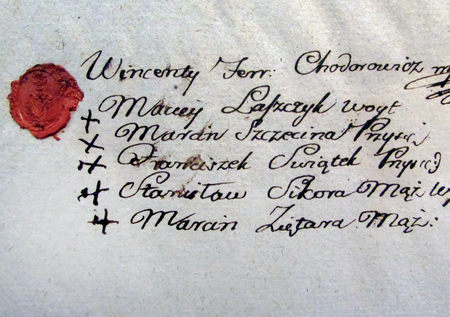 Wincenty Ferr: Chodorowicz
+ Maciej Laszczyk woyt
+ Marcin Szczecina Przysię
+ Franciszek Swiątek Przysię
+ Stanisław Sikora Mąż
+ Marcin Ziętara Mąż: